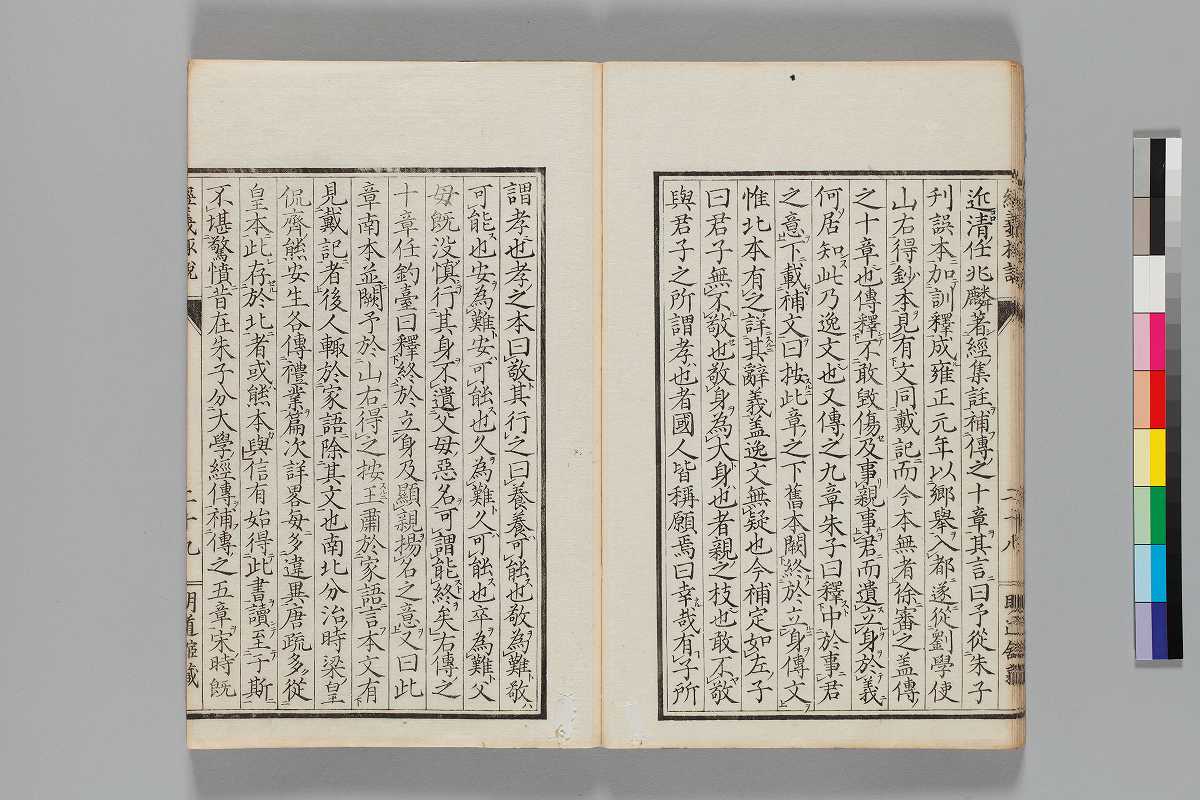 近清任兆麟著經集註補傳之十章其言曰予從朱子
刋誤本加訓釋成雍正元年以鄉舉入都遂從劉學使
山右得鈔本見有下文同戴記而今本無者徐審之盖傳
之十章也傳釋不敢毀傷及事親事君而遺立身於義
何居知此乃逸文也又傳之九章朱子曰釋中於事君
之意下載補文曰按此章之下舊本闕終於立身傳文
惟北本有之詳其辭義盖逸文無疑也今補定如左子
曰君子無不敬也敬身為大身也者親之枝也敢不敬
與君子之所謂孝也者國人皆稱願焉曰幸哉有子所
謂孝也孝之本曰敬其行之曰養養可能也敬為難敬
可能也安為難安可能也久為難久可能也卒為難父
母既没慎行其身不遺父母惡名可謂能終矣右傳之
十章任釣臺曰釋終於立身及顯親揚名之意又曰此
章南本並闕予於山右得之按王肅於家語言本文有
見戴記者後人輙於家語除其文也南北分治時梁皇
侃齊熊安生各傳禮業篇次詳畧每多違異唐疏多從
皇本此存於北者或熊本與信有始得此書讀至于斯
不堪驚憤昔在朱子分大學經傳補傳之五章宋時既
二十九
明道館藏